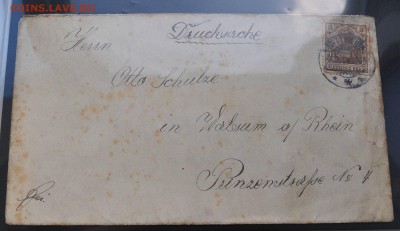 COINS.LAVE.RU
Drucksache
Herrn
Otto Schulze
in Walsum a/Rhein
Prinzenstraße No 4